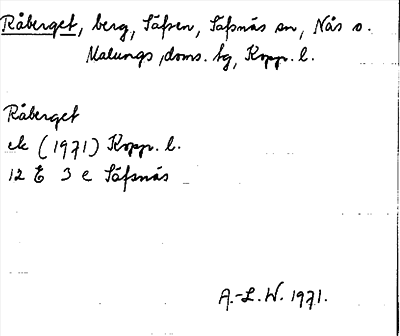 Råberget, berg, Säfsen, Säfsnäs sn, Nås o.
Malungs doms. hg, Kopp. l.
Råberget
ek (1971) Kopp. l.
12 E 3 e Säfsnäs
A.-L.W. 1971.